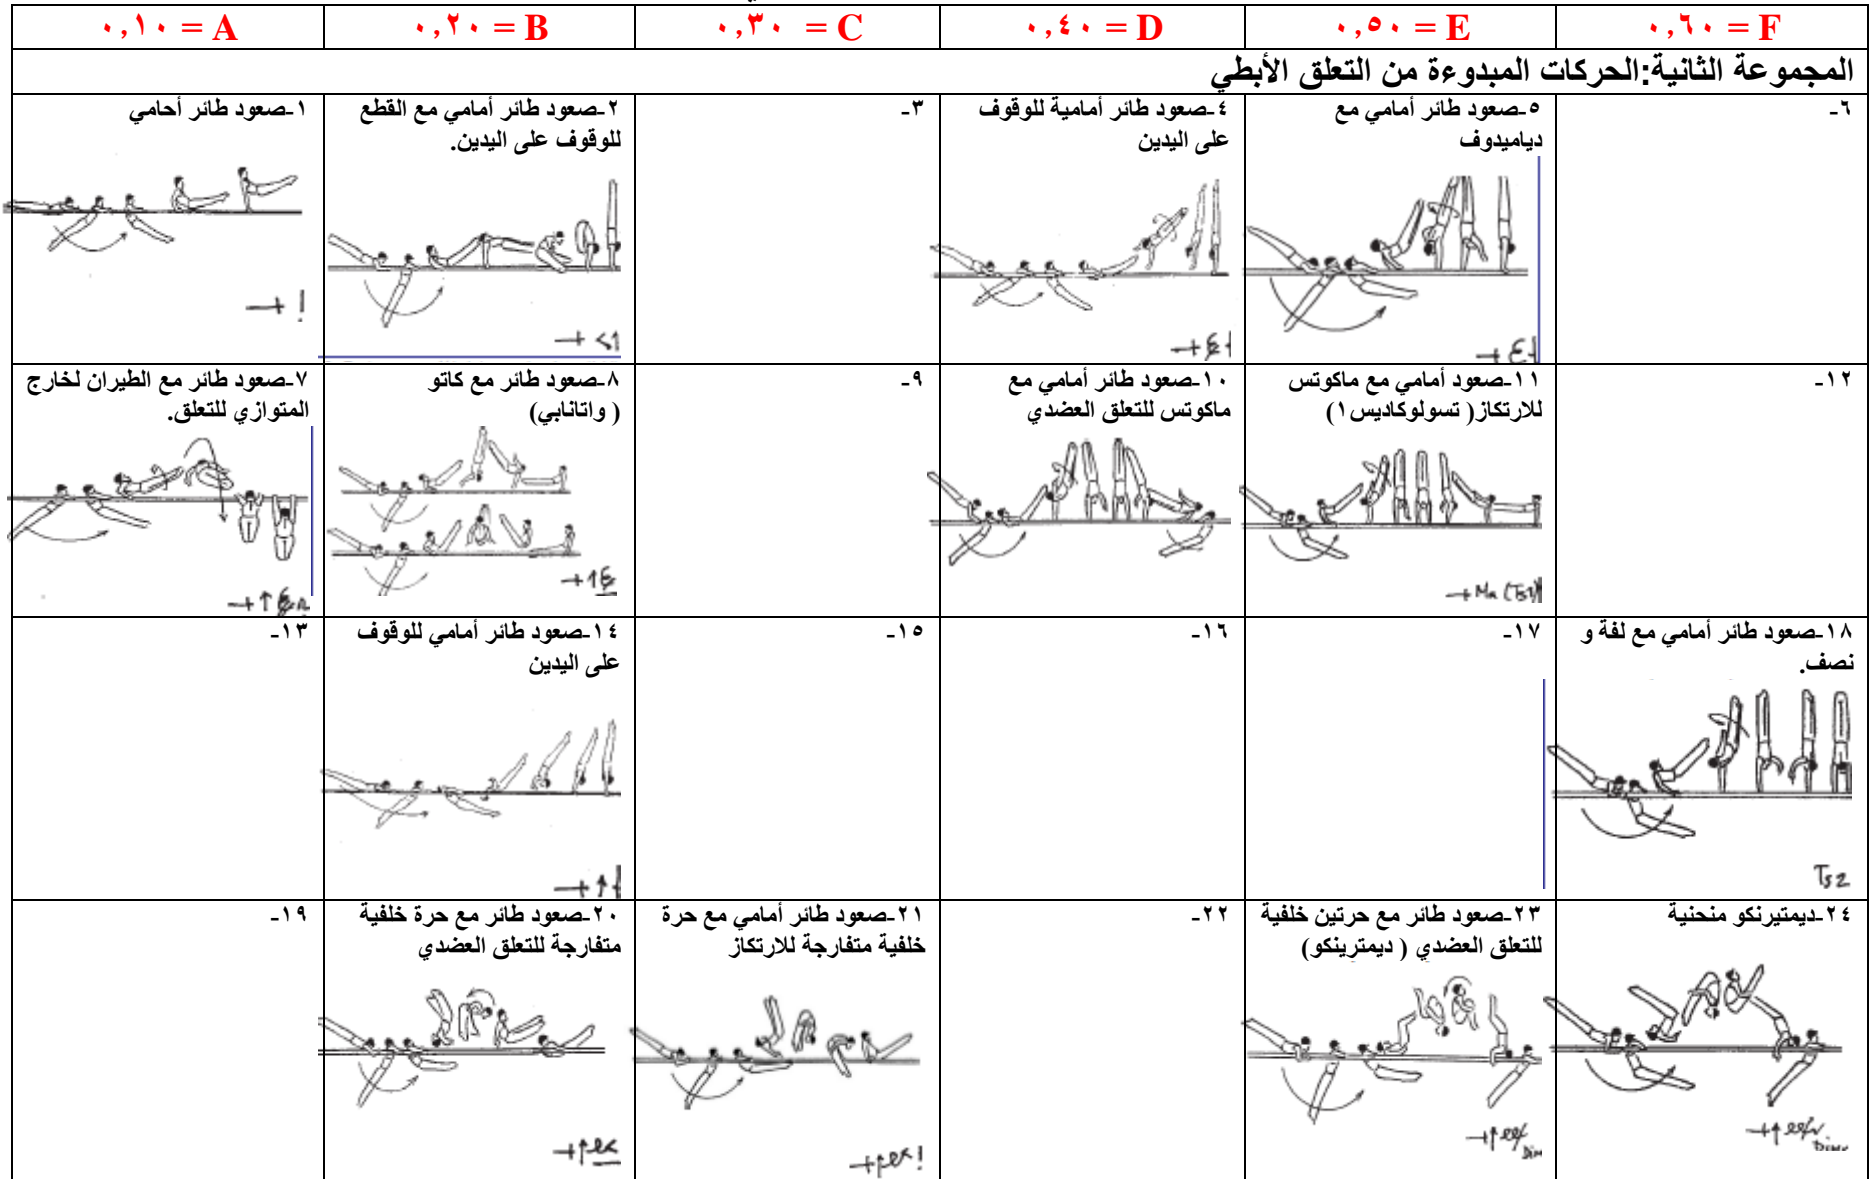 ٠,١٠ = A
٠,٢٠ = B
٠,٣٠ = C
٠,٤٠ = D
٠,٥٠ = E
٠,٦٠ = F
المجموعة الثانية:الحركات المبدوءة من التعلق الأبطي
١-صعود طائر أحامي
٢-صعود طائر أمامي مع القطع
للوقوف على اليدين.
٣-
٤-صعود طائر أمامية للوقوف
على اليدين
٥-صعود طائر أمامي مع
دياميدوف
٦-
٧-صعود طائر مع الطيران لخارج
المتوازي للتعلق.
٨-صعود طائر مع كاتو
( واتانابي)
٩-
١٠-صعود طائر أمامي مع
ماكوتس للتعلق العضدي
١١-صعود أمامي مع ماكوتس
للارتكاز( تسولوكاديس١)
١٢-
١٣-
١٤-صعود طائر أمامي للوقوف
على اليدين
١٥-
١٦-
١٧-
١٨-صعود طائر أمامي مع لفة و
نصف.
Ts2
١٩-
٢٠-صعود طائر مع حرة خلفية
متفارجة للتعلق العضدي
٢١-صعود طائر أمامي مع حرة
خلفية متفارجة للارتكاز
٢٢-
٢٣-صعود طائر مع حرتين خلفية
للتعلق العضدي ( ديمترينكو)
٢٤-ديمتيرنكو منحنية